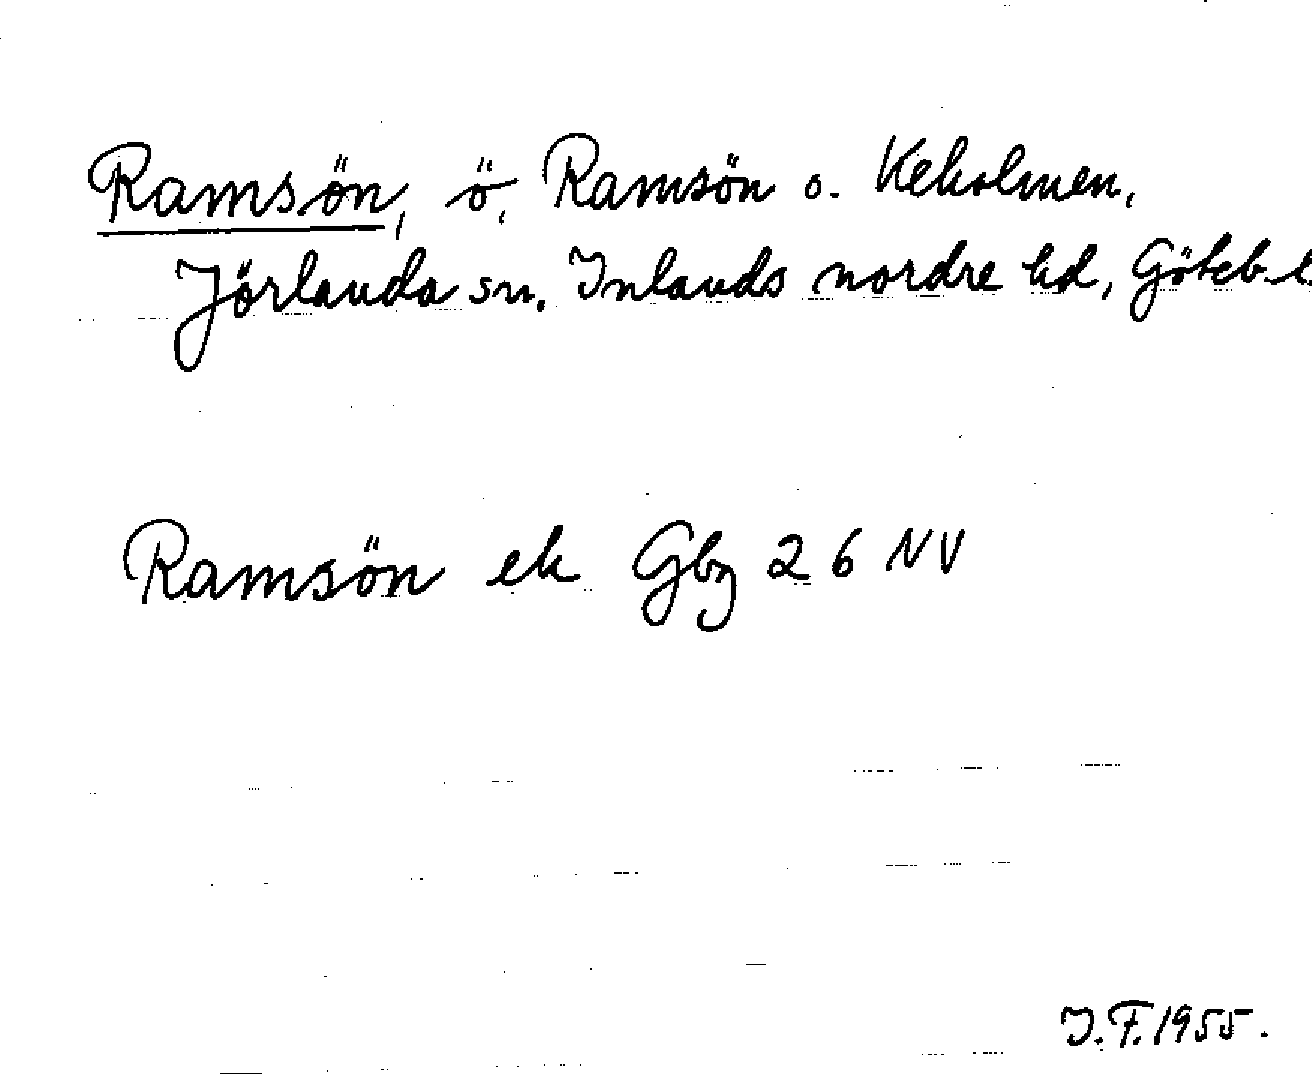 Ramsön, ö, Ramsön o. Keholmen,
Jörlanda sn. Inlands nordre hd, Göteb. l.
Ramsön ek Gbg 26 NV
I.F. 1955.